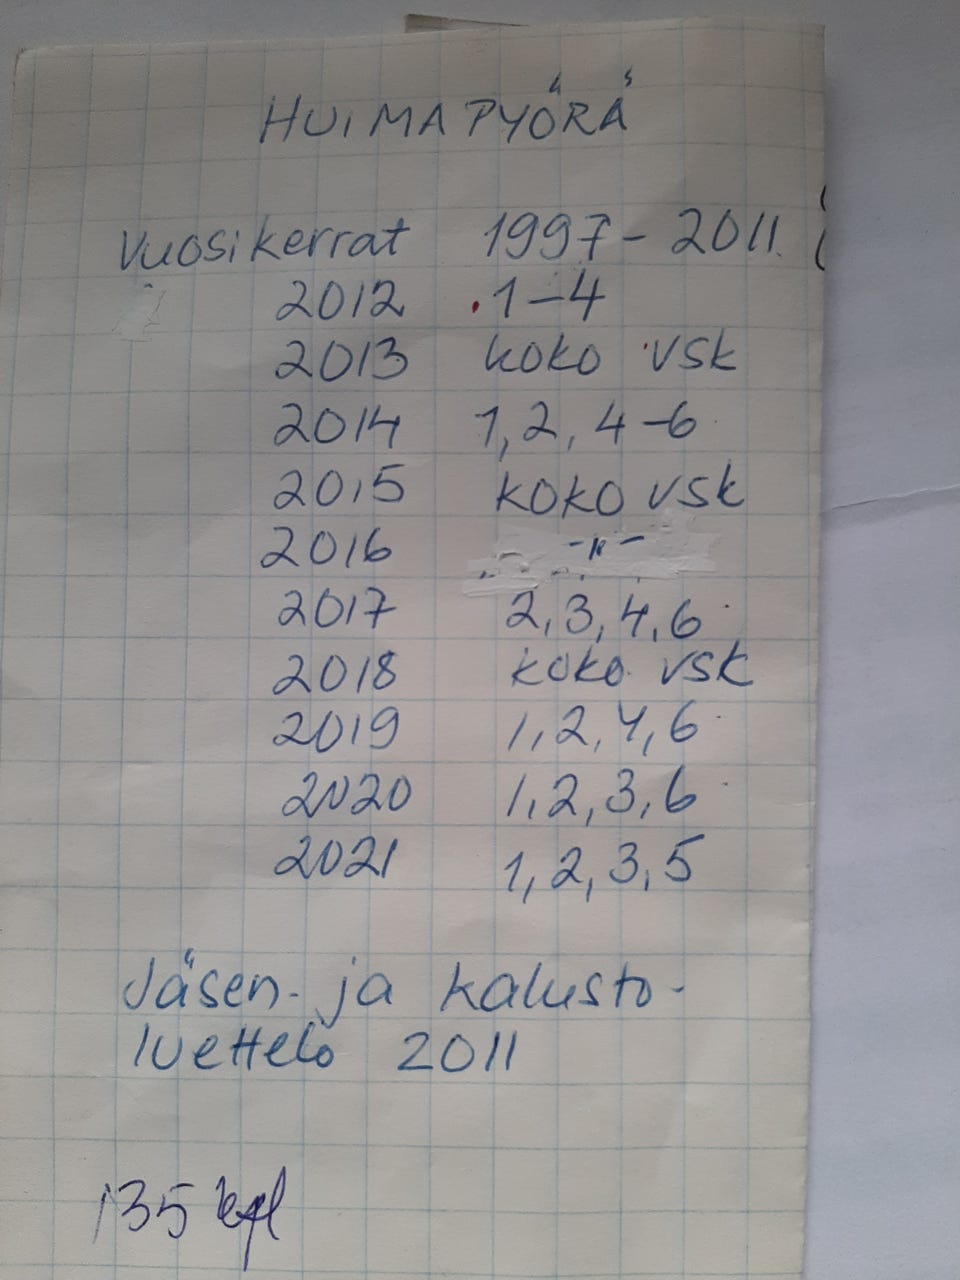 HUIMAPYÖRÄ
Vuosikerrat 1997-2011.
2012 1-4
2013 koko vsk
2014 1,2,4-6
2015 koko vsk
2016 -"-
2017 2,3,4,6
2018 koko vsk
2019 1,2,4,6
2020 1,2,3,6
2021 1,2,3,5
Jäsen- ja kalusto-
luettelo 2011
135 kpl